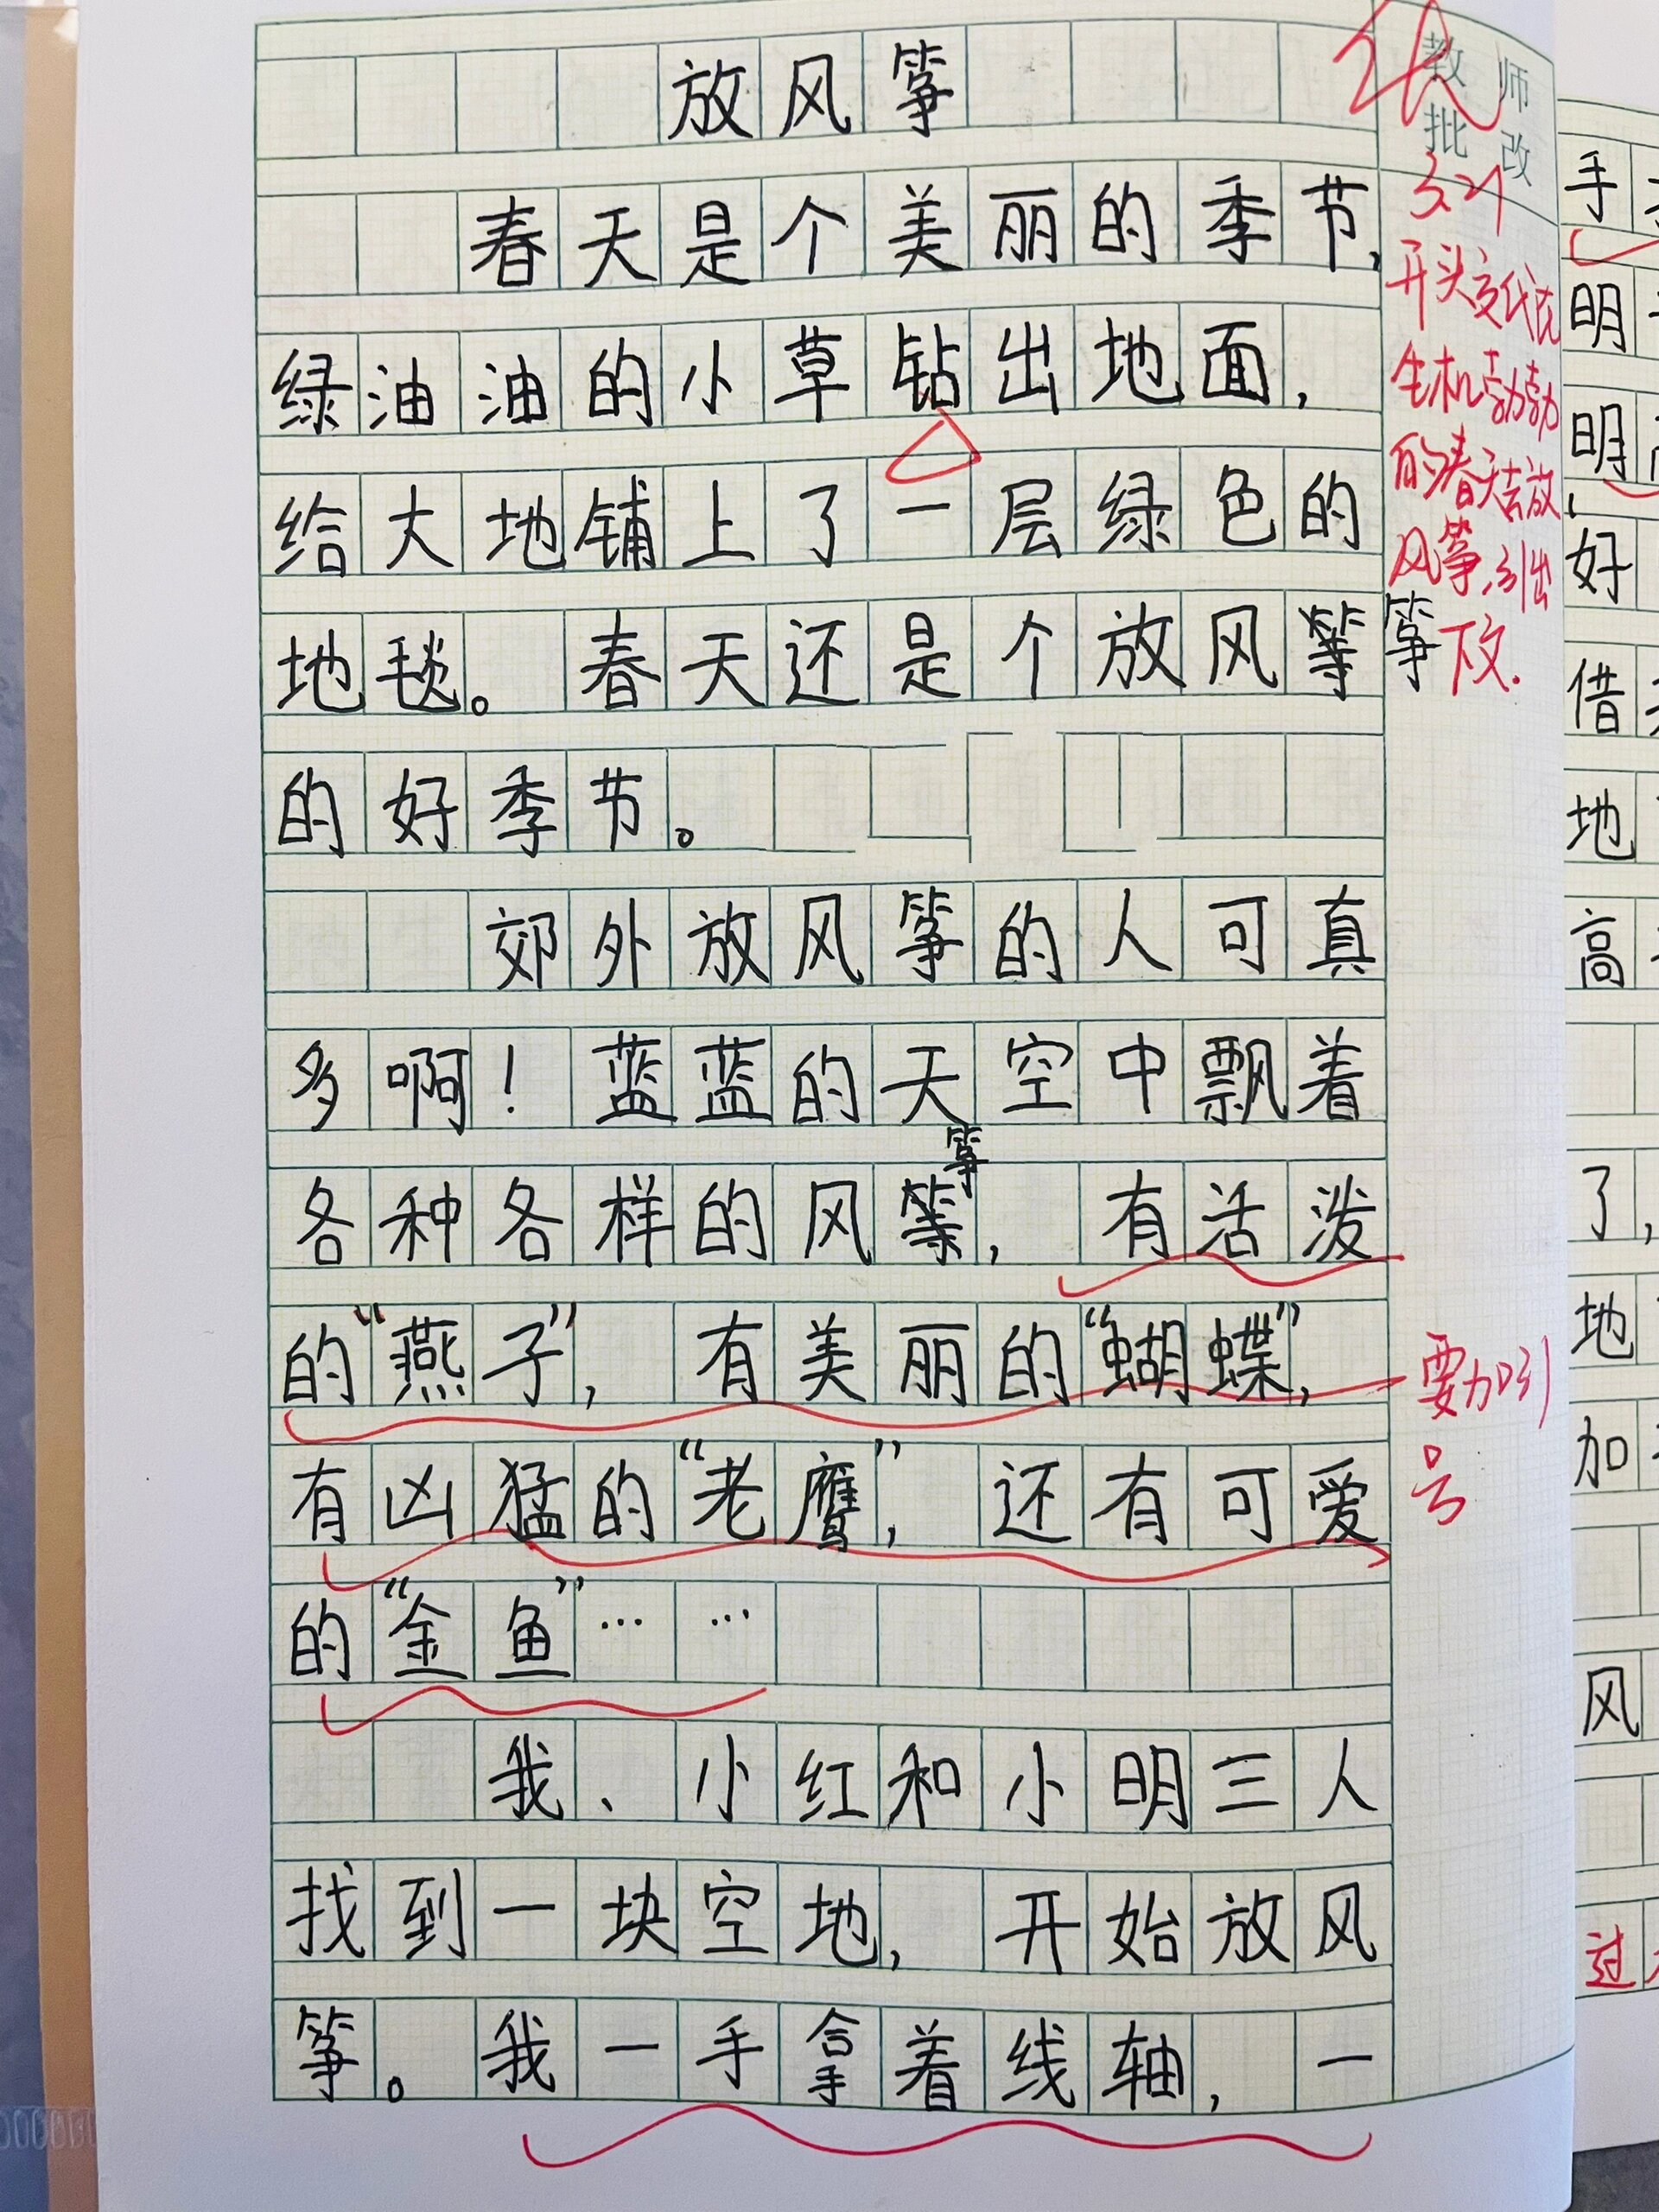 放风筝
春天是个美丽的季节,
绿油油的小草钻出地面,
给大地铺上了一层绿色的
地毯。春天还是个放风筝
的好季节。
郊外放风筝的人可真
多啊!蓝蓝的天空中飘着
各种各样的风筝,有活泼
的“燕子”,有美丽的“蝴蝶”,
有凶猛的“老鹰”,还有可爱
的“金鱼”……
我、小红和小明三人
找到一块空地,开始放风
筝。我一手拿着线轴,一
教师
批改
3.21
开头交代在
生机勃勃
的春天去放
风筝,引出
下文.
要加引
号
手
明
明
好
借
地
高
了,
地
加
风
过